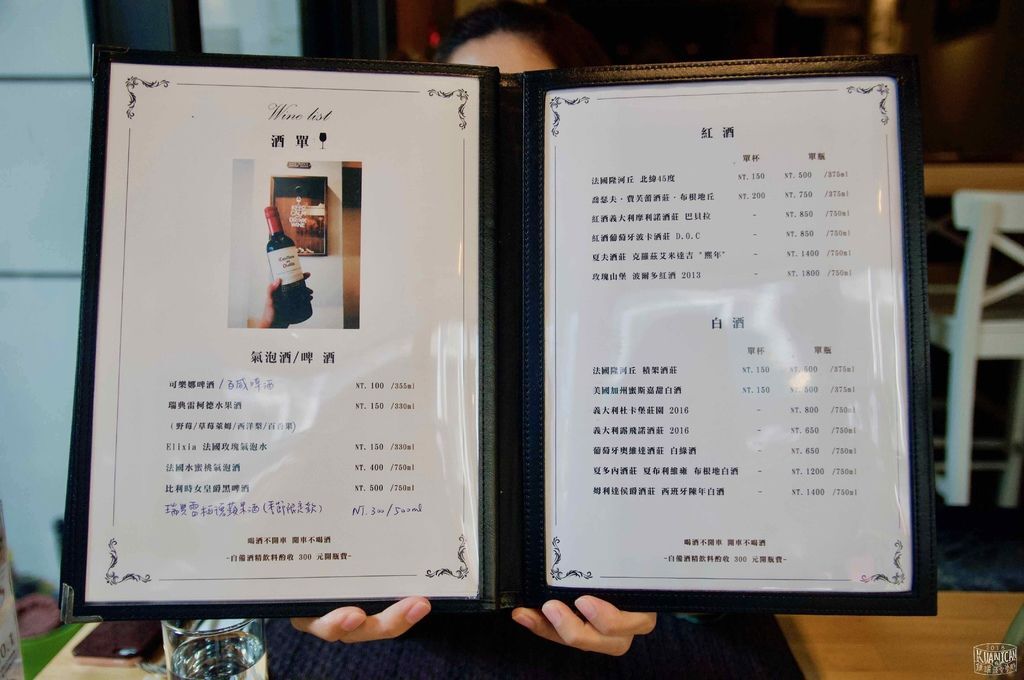 Wine list
酒 單
KEEP CALM AND DRINK WINE
氣泡酒/啤 酒
可樂娜啤酒 /百威啤酒 NT. 100 /355ml
瑞典雷柯德水果酒 NT. 150 /330ml
(野莓/草莓萊姆/西洋梨/百香果)
Elixia 法國玫瑰氣泡水 NT. 150 /330ml
法國水蜜桃氣泡酒 NT. 400 /750ml
比利時女皇爵黑啤酒 NT. 500 /750ml
瑞典雷柯德蘋果酒(季節限定款) NT.300/500ml
喝酒不開車 開車不喝酒
-自備酒精飲料酌收 300 元開瓶費-
紅 酒
單杯 單瓶
法國隆河丘 北緯45度 NT. 150 NT. 500 /375ml
喬瑟夫·費芙蕾酒莊·布根地丘 NT. 200 NT. 750 /375ml
紅酒義大利摩利諾酒莊 巴貝拉 - NT. 850 /750ml
紅酒葡萄牙波卡酒莊 D.O.C - NT. 850 /750ml
夏夫酒莊 克羅茲艾米達吉 "熙年" - NT. 1400 /750ml
玫瑰山堡 波爾多紅酒 2013 - NT. 1800 /750ml
白 酒
單杯 單瓶
法國隆河丘 積架酒莊 NT. 150 NT. 500 /375ml
美國加州蜜斯嘉甜白酒 NT. 150 NT. 500 /375ml
義大利杜卡堡莊園 2016 - NT. 800 /750ml
義大利露飛諾酒莊 2016 - NT. 650 /750ml
葡萄牙奧維達酒莊 白綠酒 - NT. 650 /750ml
夏多內酒莊 夏布利維雍 布根地白酒 - NT. 1200 /750ml
姆利達侯爵酒莊 西班牙陳年白酒 - NT. 1400 /750ml
喝酒不開車 開車不喝酒
-自備酒精飲料酌收 300 元開瓶費-
2018
KUANYCAN